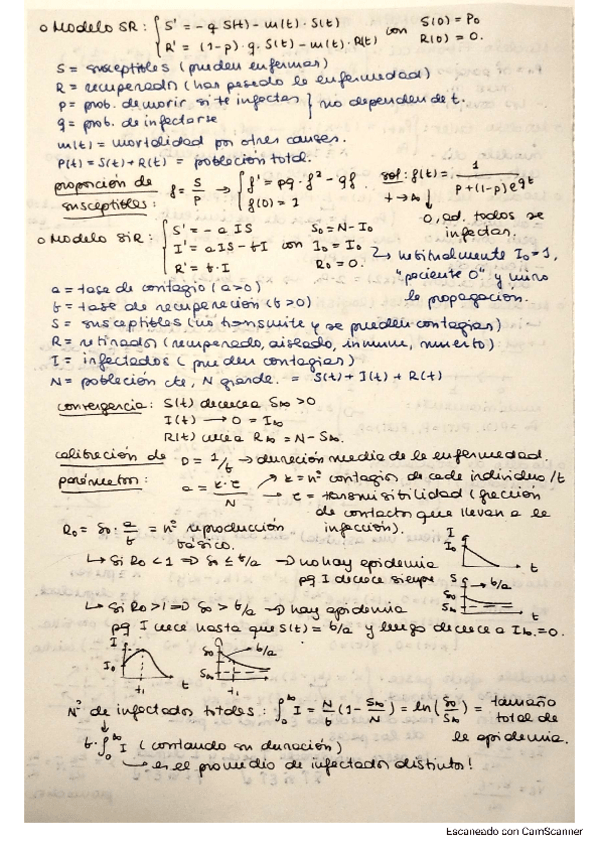 o Modelo SR: { S' = -q S(t) - m(t)·S(t) con S(0) = P₀
R' = (1-p)·q·S(t) - m(t)·R(t) R(0) = 0.
S = susceptibles (pueden enfermar)
R = recuperados (has pasado la enfermedad)
p = prob. de morir si te infectas } no dependen de t.
q = prob. de infectarse
m(t) = mortalidad por otras causas.
P(t) = S(t) + R(t) = población total.
proporción de susceptibles: f = S/P → { f' = pq·f² - qf. f(0) = 1 sol: f(t) = 1/(p+(1-p)e^{qt})
t→∞ ↓ 0, ad. todos se infectan.
o Modelo SIR: { S' = -a IS S₀ = N - I₀
I' = a IS - bI con I₀ = I₀
R' = b·I R₀ = 0.
↳ habitualmente I₀ = 1, "paciente 0" y miro la propagación.
a = tasa de contagio (a>0)
b = tasa de recuperación (b>0)
S = susceptibles (no transmite y se pueden contagiar)
R = retirados (recuperado, aislado, inmune, muerto)
I = infectados (pueden contagiar)
N = población cte, N grande. = S(t) + I(t) + R(t)
convergencia: S(t) decrece a S∞ > 0
I(t) → 0 = I∞
R(t) crece a R∞ = N - S∞.
calibración de parámetros: D = 1/b → duración media de la enfermedad.
a = k·τ/N → k = nº contagios de cada individuo/t
→ τ = transmisibilidad (fracción
de contactos que llevan a la
infección).
R₀ = S₀·a/b = nº reproducción básico.
↳ Si R₀ < 1 ⇒ S₀ ≤ b/a → no hay epidemia
pq I decrece siempre
I I₀ t
S S₀ S∞ b/a t
↳ Si R₀ > 1 ⇒ S₀ > b/a → hay epidemia
pq I crece hasta que S(t) = b/a y luego decrece a I∞ = 0.
I I₀ t₁ t
S₀ S∞ b/a t₁
Nº de infectados totales: ∫₀^∞ I = N/b (1 - S∞/N) = ln(S₀/S∞) = tamaño total de la epidemia.
b·∫₀^∞ I (contando su duración)
↳ es el promedio de infectados distintos!
Escaneado con CamScanner